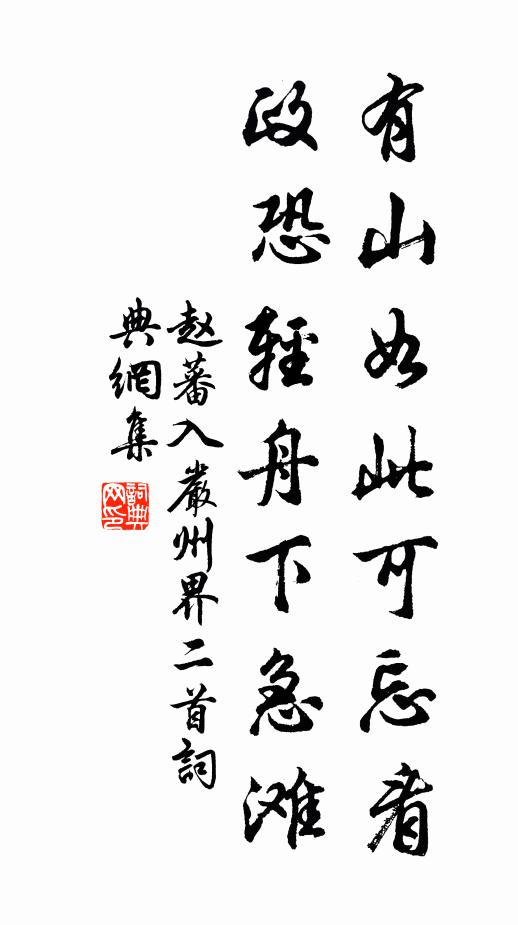 有山如此可忘看
政恐輕舟下急滩
赵蕃入嚴州界二首詞
典網集
詞典网印